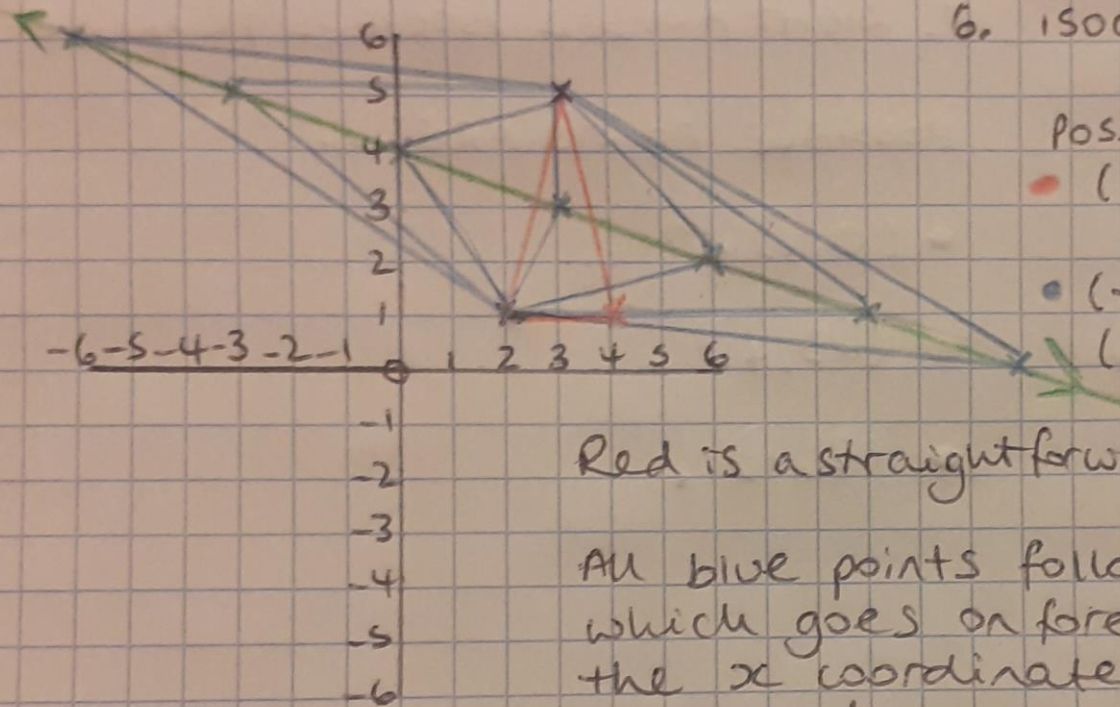 6. isoc
6
5
pos
4
• (
3
2
• (-
1
(
-6-5-4-3-2-1 0 1 2 3 4 5 6
-1
Red is a straightforw
-2
-3
All blue points follo
-4
which goes on fore
-5
the x coordinate
-6